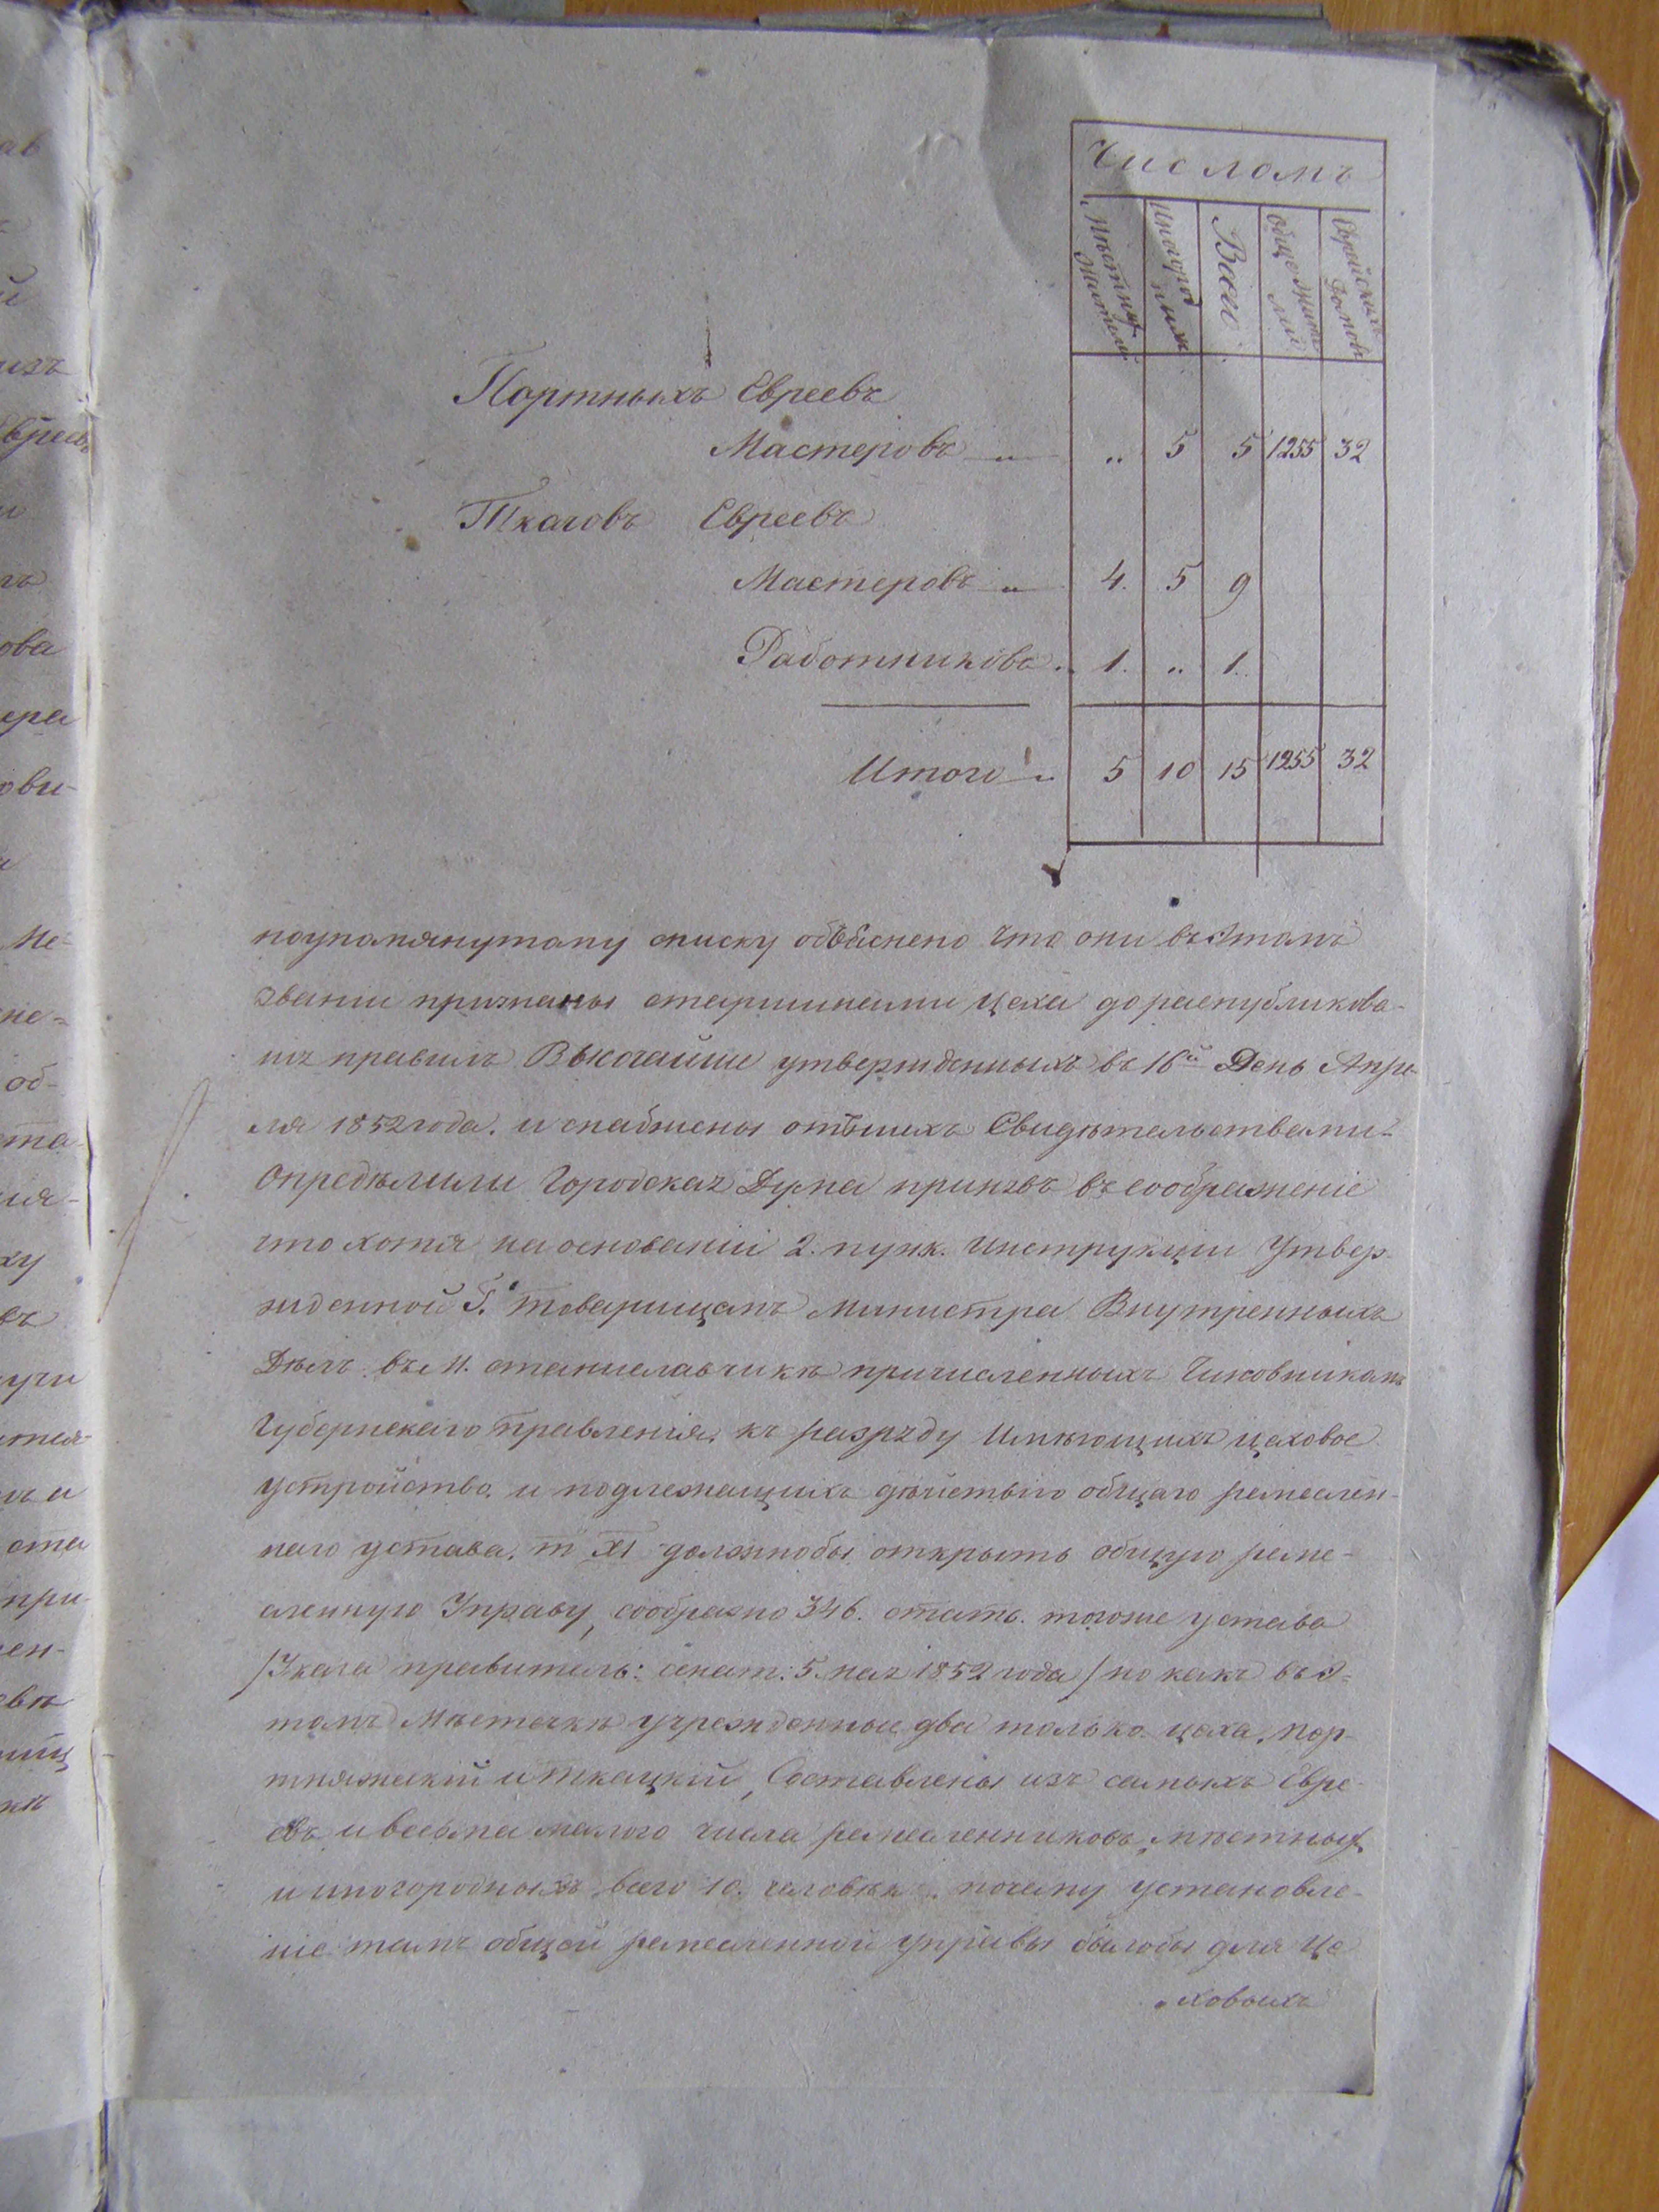 Числомъ
Мѣстныхъ жителей
Иногородныхъ
Всего
обще жителей
Еврейскихъ домовъ
Портныхъ Евреевъ
Мастеровъ „ .. 5 5 1255 32
Ткачовъ Евреевъ
Мастеровъ „ 4. 5 9
Работниковъ .. 1. .. 1.
Итого „ 5 10 15 1255 32
поупомянутому списку объяснено что они въ этомъ
звании признаны старшинами цеха до распубликова-
нія правилъ Высочайше утвержденныхъ въ 16й День Апре-
ля 1852 года. и снабжены отъ нихъ Свидѣтельствами-
Опредѣлили Городская Дума принявъ въ соображеніе
что хотя на основаніи 2. пунк. Инструкціи Утвер-
жденной Г. товарищемъ Министра Внутренныхъ
Дѣлъ въ М. станиславчикѣ причисленныхъ Чиновникомъ
Губернскаго Правленія, къ разряду Имѣющихъ цеховое
устройство, и подлежащихъ дѣйствію общаго ремеслен-
наго устава. т XI должнобы открыть общую реме-
сленную Управу, сообразно 346. стать. тогоже устава
/Указа правитель: сенат: 5. мая 1852 года/ но какъ въ э-
томъ Мѣстечкѣ учрежденные два только цеха, пор-
тняжескій и ткацкій, Составлены изъ самыхъ Евре-
евъ и весьма малого числа ремесленниковъ, мѣстныхъ
и иногородныхъ всего 10. человѣкъ, почему установле-
ніе тамъ общей ремесленной управы былобы для Це
„ховыхъ